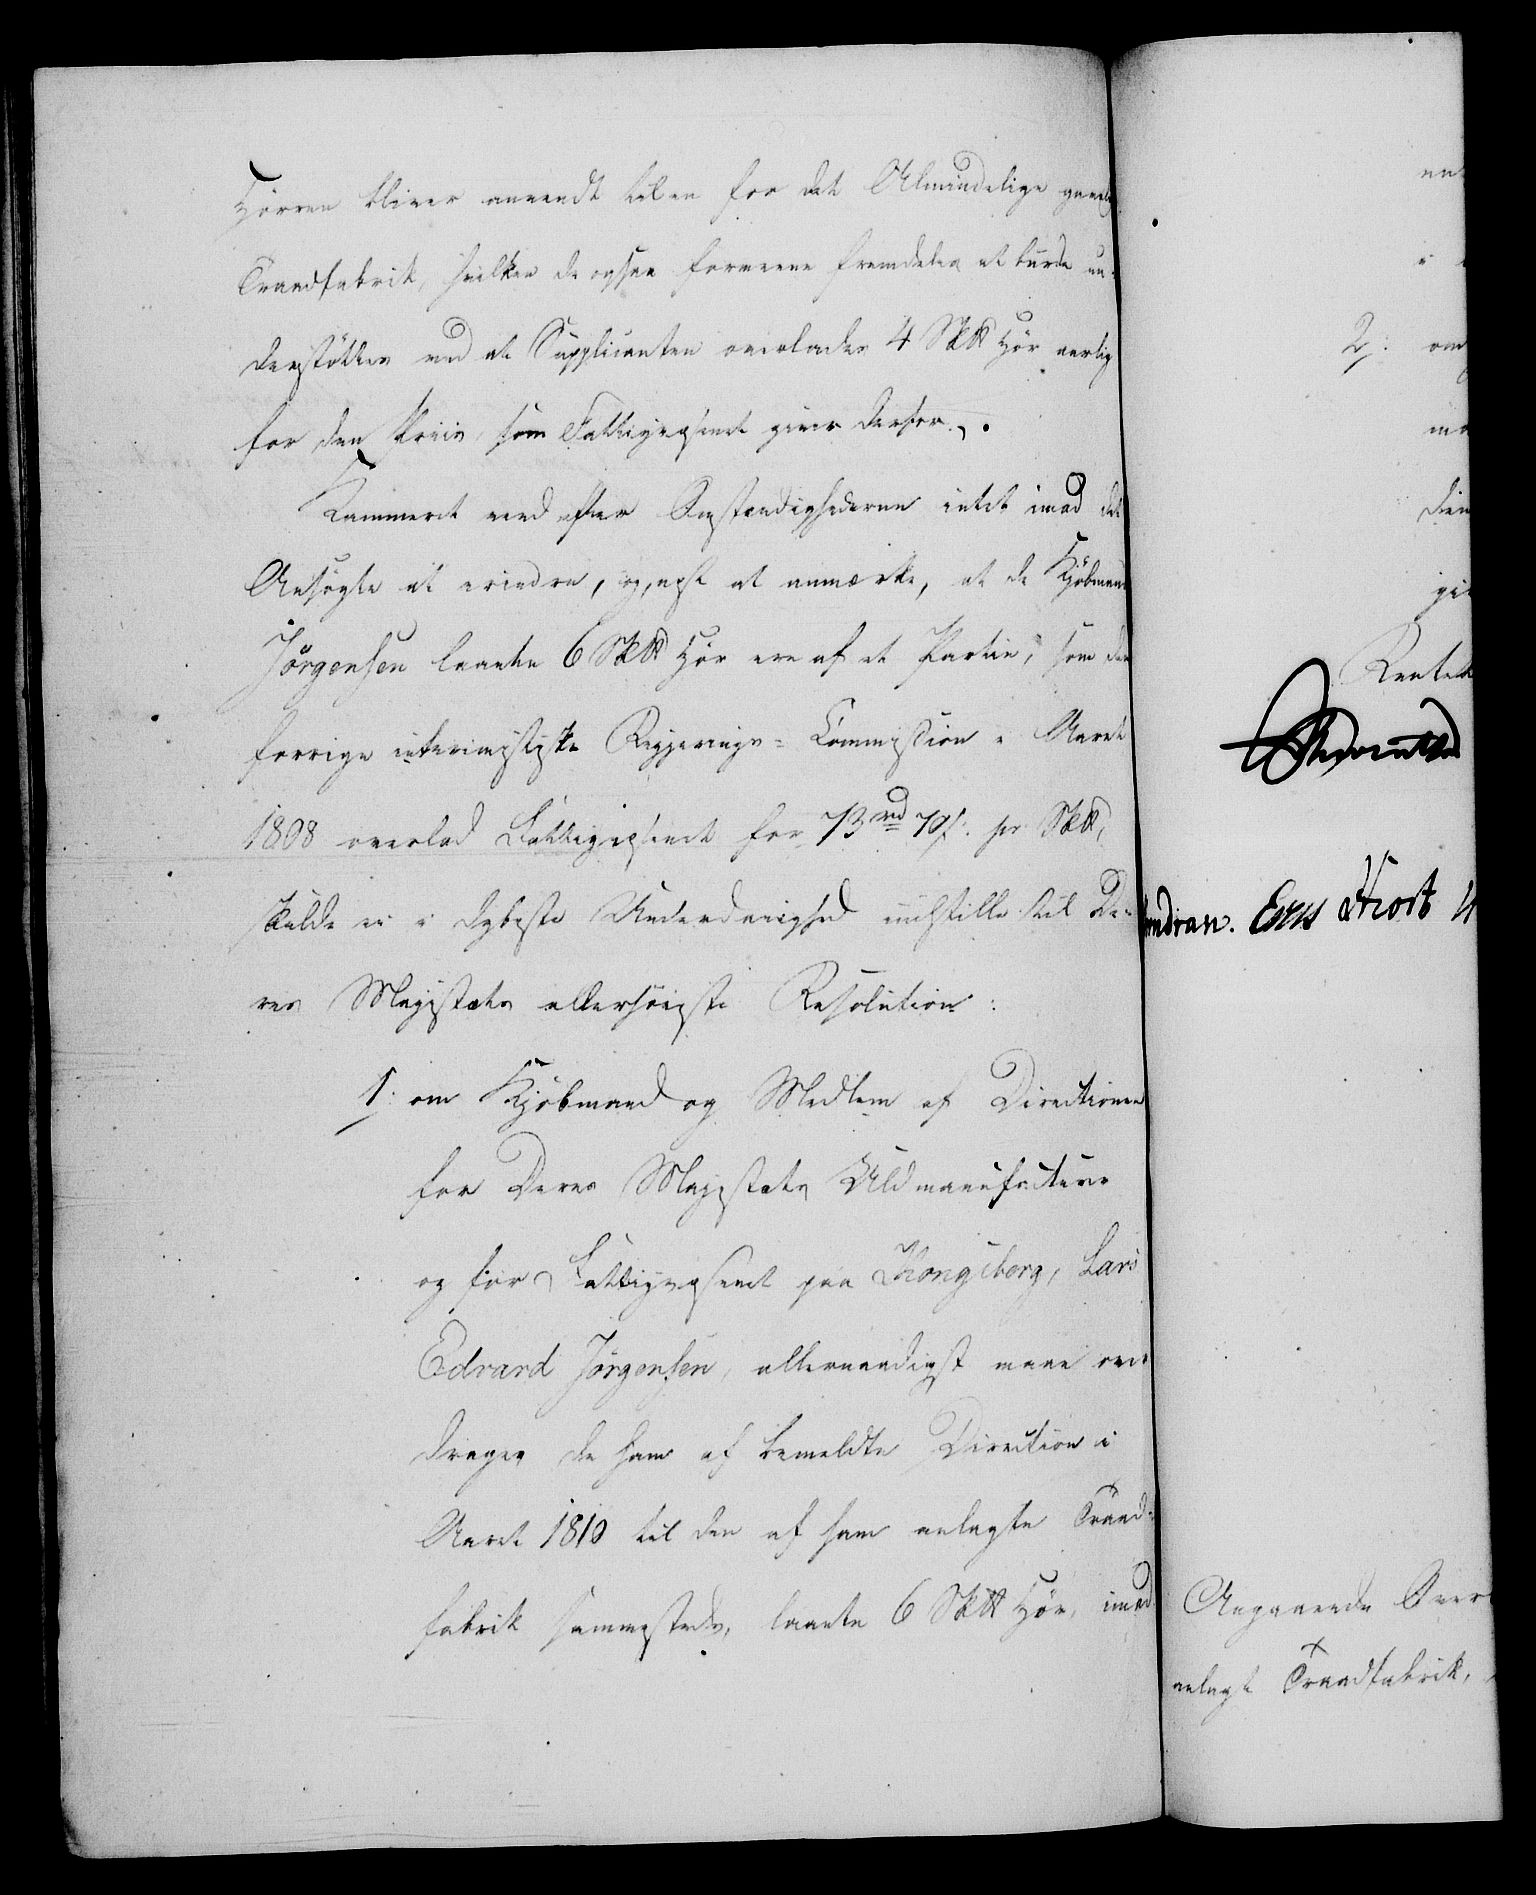 Hørren bliver anvendt til en for det Almindelige gavnlig
Traadfabrik, hvilken de ogsaa formeene fremdeles at burde un-
derstøttes ved at Supplicanten overlades 4 Sk℔ Hør aarlig
for den Priis, som Fattigvæsenet giver derfor.
Kammeret veed efter Omstændighederne intet imod det
Ansøgte at erindre, og, næst at anmærke, at de Kjøbmand
Jørgensen laante 6 Sk℔ Hør ere af et Partie, som den
forrige interimistiske Regjerings-Commission i Aaret
1808 overlod Fattigvæsenet for 73 rd 70 s. pr Sk℔,
skulde vi i dybeste Underdanighed indstille til De-
res Majestæts allerhøieste Resolution:
1: om Kjøbmand og Medlem af Directionen
for Deres Majestæts Uldmanufactur
og for Fattigvæsenet paa Kongsberg, Lars
Edvard Jørgensen, allernaadigst maae over
drages de ham af bemeldte Direction i
Aaret 1810 til den af ham anlagte Traad-
fabrik sammesteds, laante 6 Sk℔ Hør, imod
2: om
Rentek
Eens Hiort
Angaaende Over
anlagt Traadfabrik,